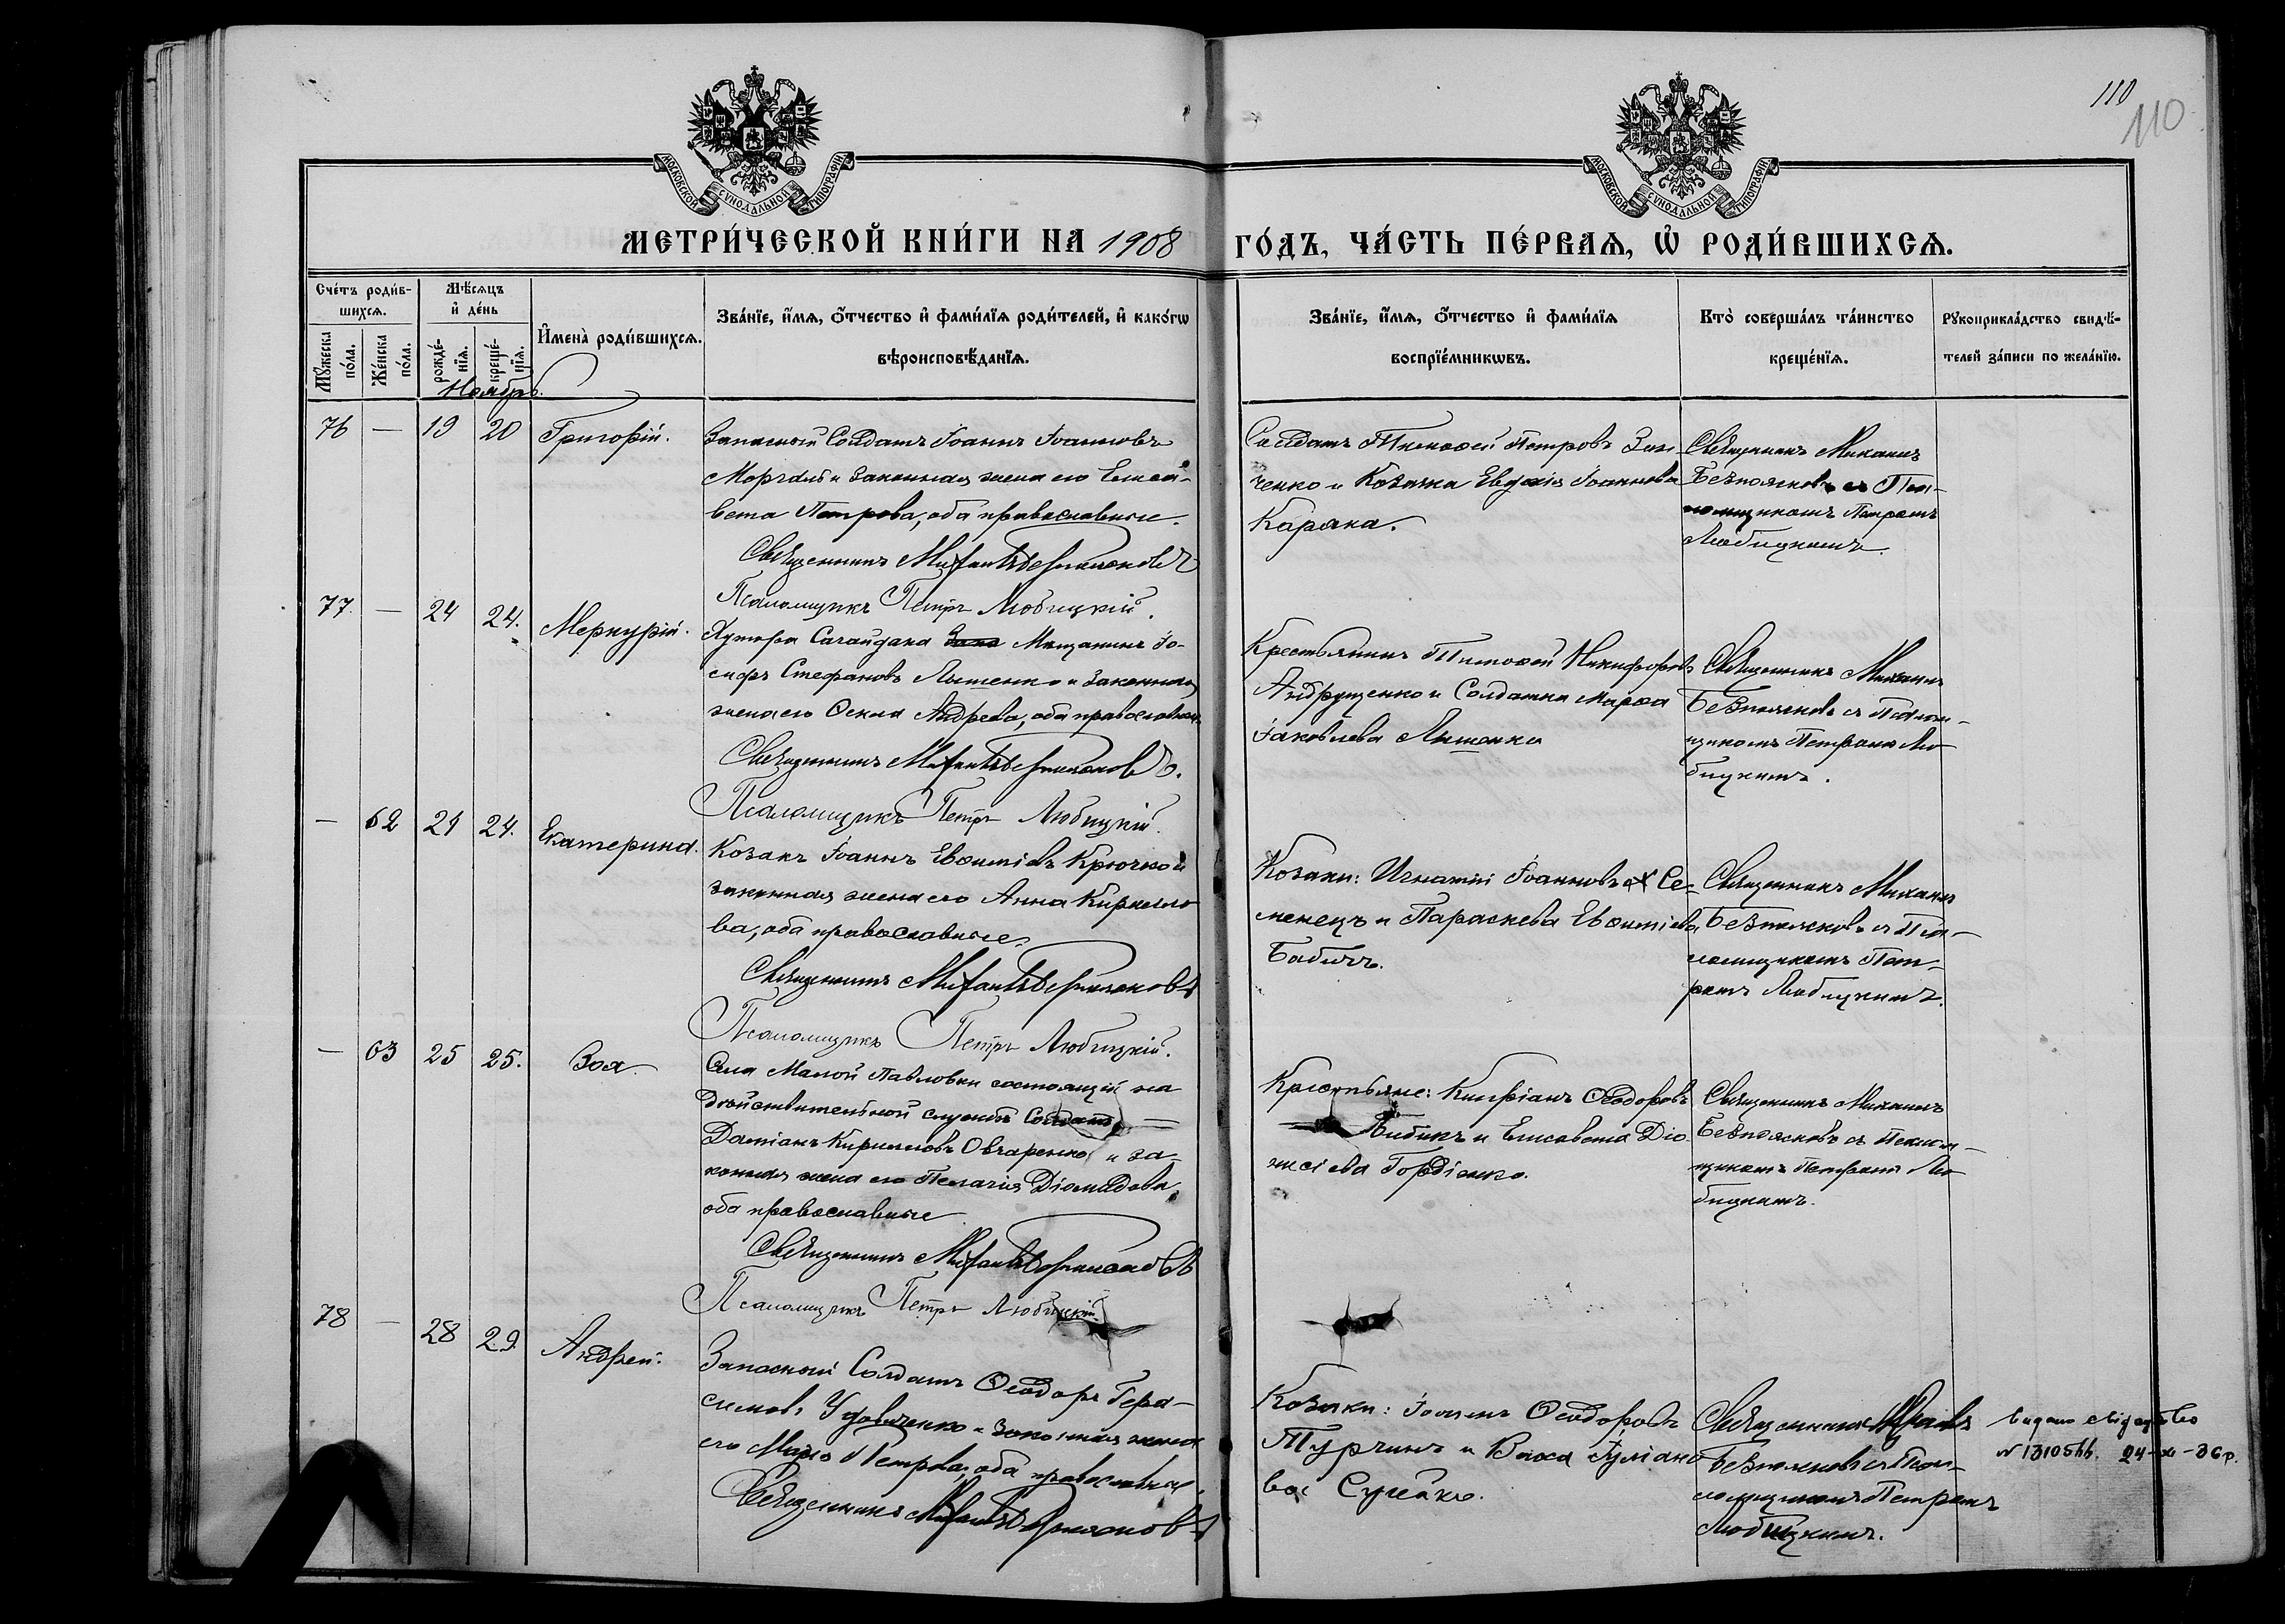 110
110
МОСКОВСКОЙ СѴНОДАЛЬНОЙ ТИПОГРАФІИ
МОСКОВСКОЙ СѴНОДАЛЬНОЙ ТИПОГРАФІИ
МЕТРИ́ЧЕСКОЙ КНИ́ГИ НА 1908 ГО́ДЪ, ЧА́СТЬ ПЕ́РВАѦ, Ѡ҆ РОДИ́ВШИХСѦ.
Сче́тъ роди́в-
шихсѧ.
Мꙋ́жеска по́ла.
Же́нска по́ла.
Мѣ́сѧцъ
и҆ де́нь
рожде́-
нїѧ.
креще́-
нїѧ.
И҆мена̀ роди́вшихсѧ.
Зва́нїе, и҆́мѧ, ѻ҆́тчество и҆ фами́лїѧ роди́телей, и҆ како́гѡ
вѣроисповѣ́данїѧ.
Зва́нїе, и҆́мѧ, ѻ҆́тчество и҆ фами́лїѧ
воспрїе́мникѡвъ.
Кто̀ соверша́лъ та́инство
креще́нїѧ.
Рꙋкоприкла́дство свидѣ́-
телей за́писи по жела́нїю.
Ноябрь.
76 — 19 20 Григорій.
Запасной Солдатъ Іоаннъ Іоанновъ
Моргаль и законная жена его Елиса-
вета Петрова, оба православные.
Священникъ
Псаломщикъ Петръ Любицкій.
Солдатъ Тимоѳей Петровъ
ченко и Козачка Евдокія Іоаннова
Каряка.
Священникъ Михаилъ
Безпоясковъ съ Пса-
ломщикомъ Петромъ
Любицкимъ.
77. — 24 24. Меркурій.
Хутора Сагайдака Мещанинъ Іо-
сифъ Стефановъ Лышенко и законная
жена его Ѳекла Андреева, оба православные.
Священникъ
Псаломщикъ Петръ Любицкій.
Крестьянинъ Тимоѳей Никифоровъ
Андрущенко и Солдатка Марѳа
Іаковлева Лышенко
Священникъ Михаилъ
Безпоясковъ съ Псалом-
щикомъ Петромъ Лю-
бицкимъ.
— 62 24 24. Екатерина.
Козакъ Іоаннъ Евѳиміевъ Крючко и
законная жена его Анна Кирилло-
ва, оба православные.
Священникъ
Псаломщикъ Петръ Любицкій.
Козаки: Игнатій Іоанновъ Се-
менецъ и Параскева Евѳиміева
Бабичъ.
Священникъ Михаилъ
Безпоясковъ съ Пса-
ломщикомъ Пет-
ромъ Любицкимъ.
— 63 25 25. Зоя.
Села Малой Павловки состоящій на
дѣйствительной службѣ Солдатъ —
Даміанъ Кирилловъ Овчаренко и за-
конная жена его Пелагія Діомидова,
оба православные
Священникъ
Псаломщикъ Петръ Любицкій.
Крестьяне: Кипріанъ Ѳеодоровъ
Бибикъ и Елисавета Діо-
нисіева Гордіенко.
Священникъ Михаилъ
Безпоясковъ съ Псалом-
щикомъ Петромъ Лю-
бицкимъ.
78 — 28 29. Андрей.
Запасной Солдатъ Ѳеодоръ Гера-
симовъ Удовиченко и законная жена
его Марія Петрова, оба православные.
Священникъ
Козаки: Іоаннъ Ѳеодоровъ
Турчинъ и Васса Іуліано-
ва
Священникъ Михаилъ
Безпоясковъ съ Пса-
ломщикомъ Петромъ
Любицкимъ.
Видано свідоцтво
№ 1310566. 24-XI-36 р.